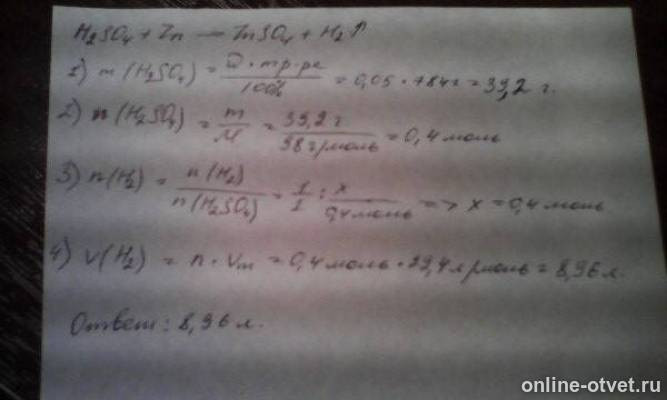 H₂SO₄ + Zn — ZnSO₄ + H₂↑
1) m(H₂SO₄) = ω · mр-ра / 100% = 0,05 · 784г = 39,2 г.
2) n(H₂SO₄) = m / M = 39,2 г / 98 г/моль = 0,4 моль
3) n(H₂) = n(H₂) / n(H₂SO₄) = 1 / 1 : x / 0,4 моль => x = 0,4 моль
4) V(H₂) = n · Vm = 0,4 моль · 22,4 л/моль = 8,96 л.
Ответ: 8,96 л.
online-otvet.ru